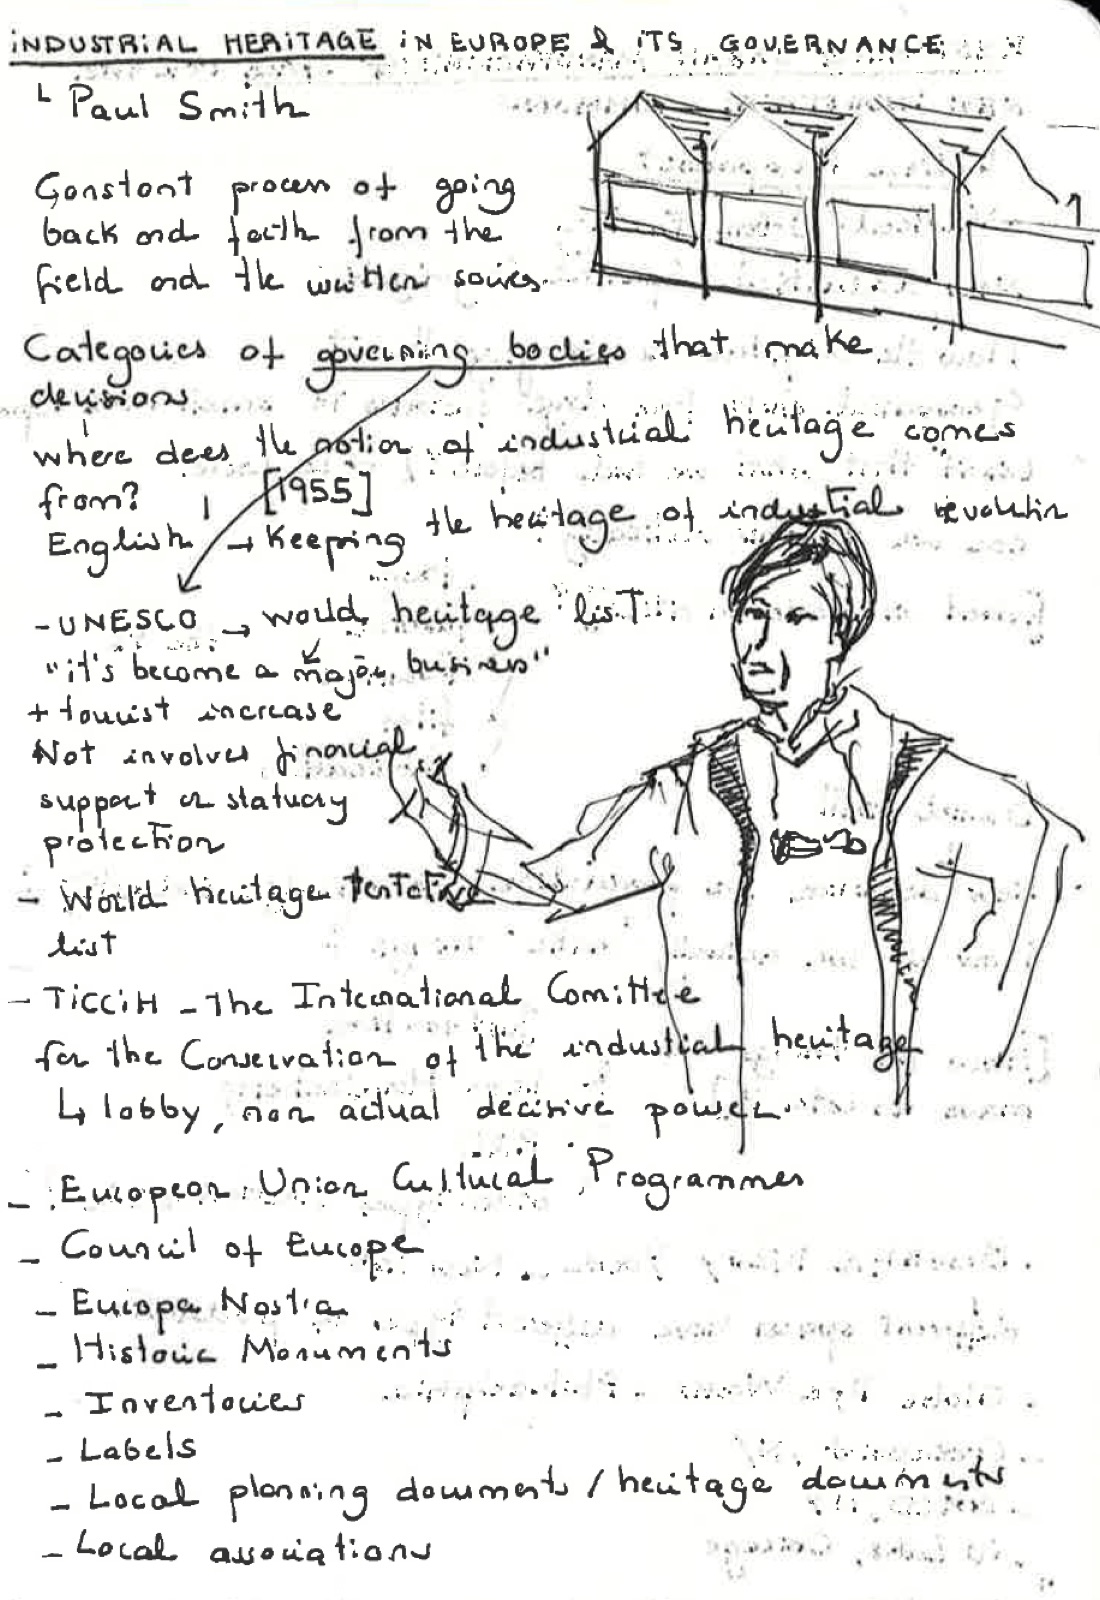 INDUSTRIAL HERITAGE IN EUROPE & ITS GOVERNANCE
Paul Smith
Constant process of going
back and forth from the
field and the written sources.
Categories of governing bodies that make
decisions
where does the notion of industrial heritage comes
from? [1955]
English → Keeping the heritage of industrial revolution
- UNESCO → would heritage list
"it's become a major business"
+ tourist increase
Not involves financial
support or statuary
protection
- World heritage tentative
list
- TICCIH - The International Comittee
for the Conservation of the industrial heritage
↳ lobby, non actual decisive power
- European Union Cultural Programmes
- Council of Europe
- Europa Nostra
- Historic Monuments
- Inventories
- Labels
- Local planning documents / heritage documents
- Local associations